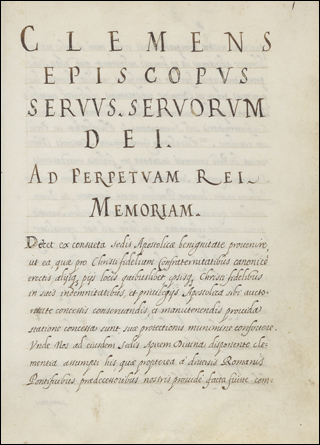 CLEMENS
EPISCOPVS
SERVVS. SERVORVM
DEI.
AD PERPETVAM REI
MEMORIAM.
Decet ex consueta sedis Apostolicæ benignitate provenire,
ut ea, quæ pro Christi fidelium Confraternitatibus canonicè
erectis alijsq; pijs locis quibuslibet ipsisq; Christi fidelibus
in suis indemnitatibus, et privilegijs Apostolica sibi aucto-
ritate concessis conservandis, et manutenendis provida
ratione concessa sunt suæ protectionis munimine confoveantur.
Unde Nos ad eiusdem Sedis Apicem Divina disponente cle-
mentia assumpti his quæ propterea a diversis Romanis
Pontificibus prædecessoribus nostris providè facta fuisse com-